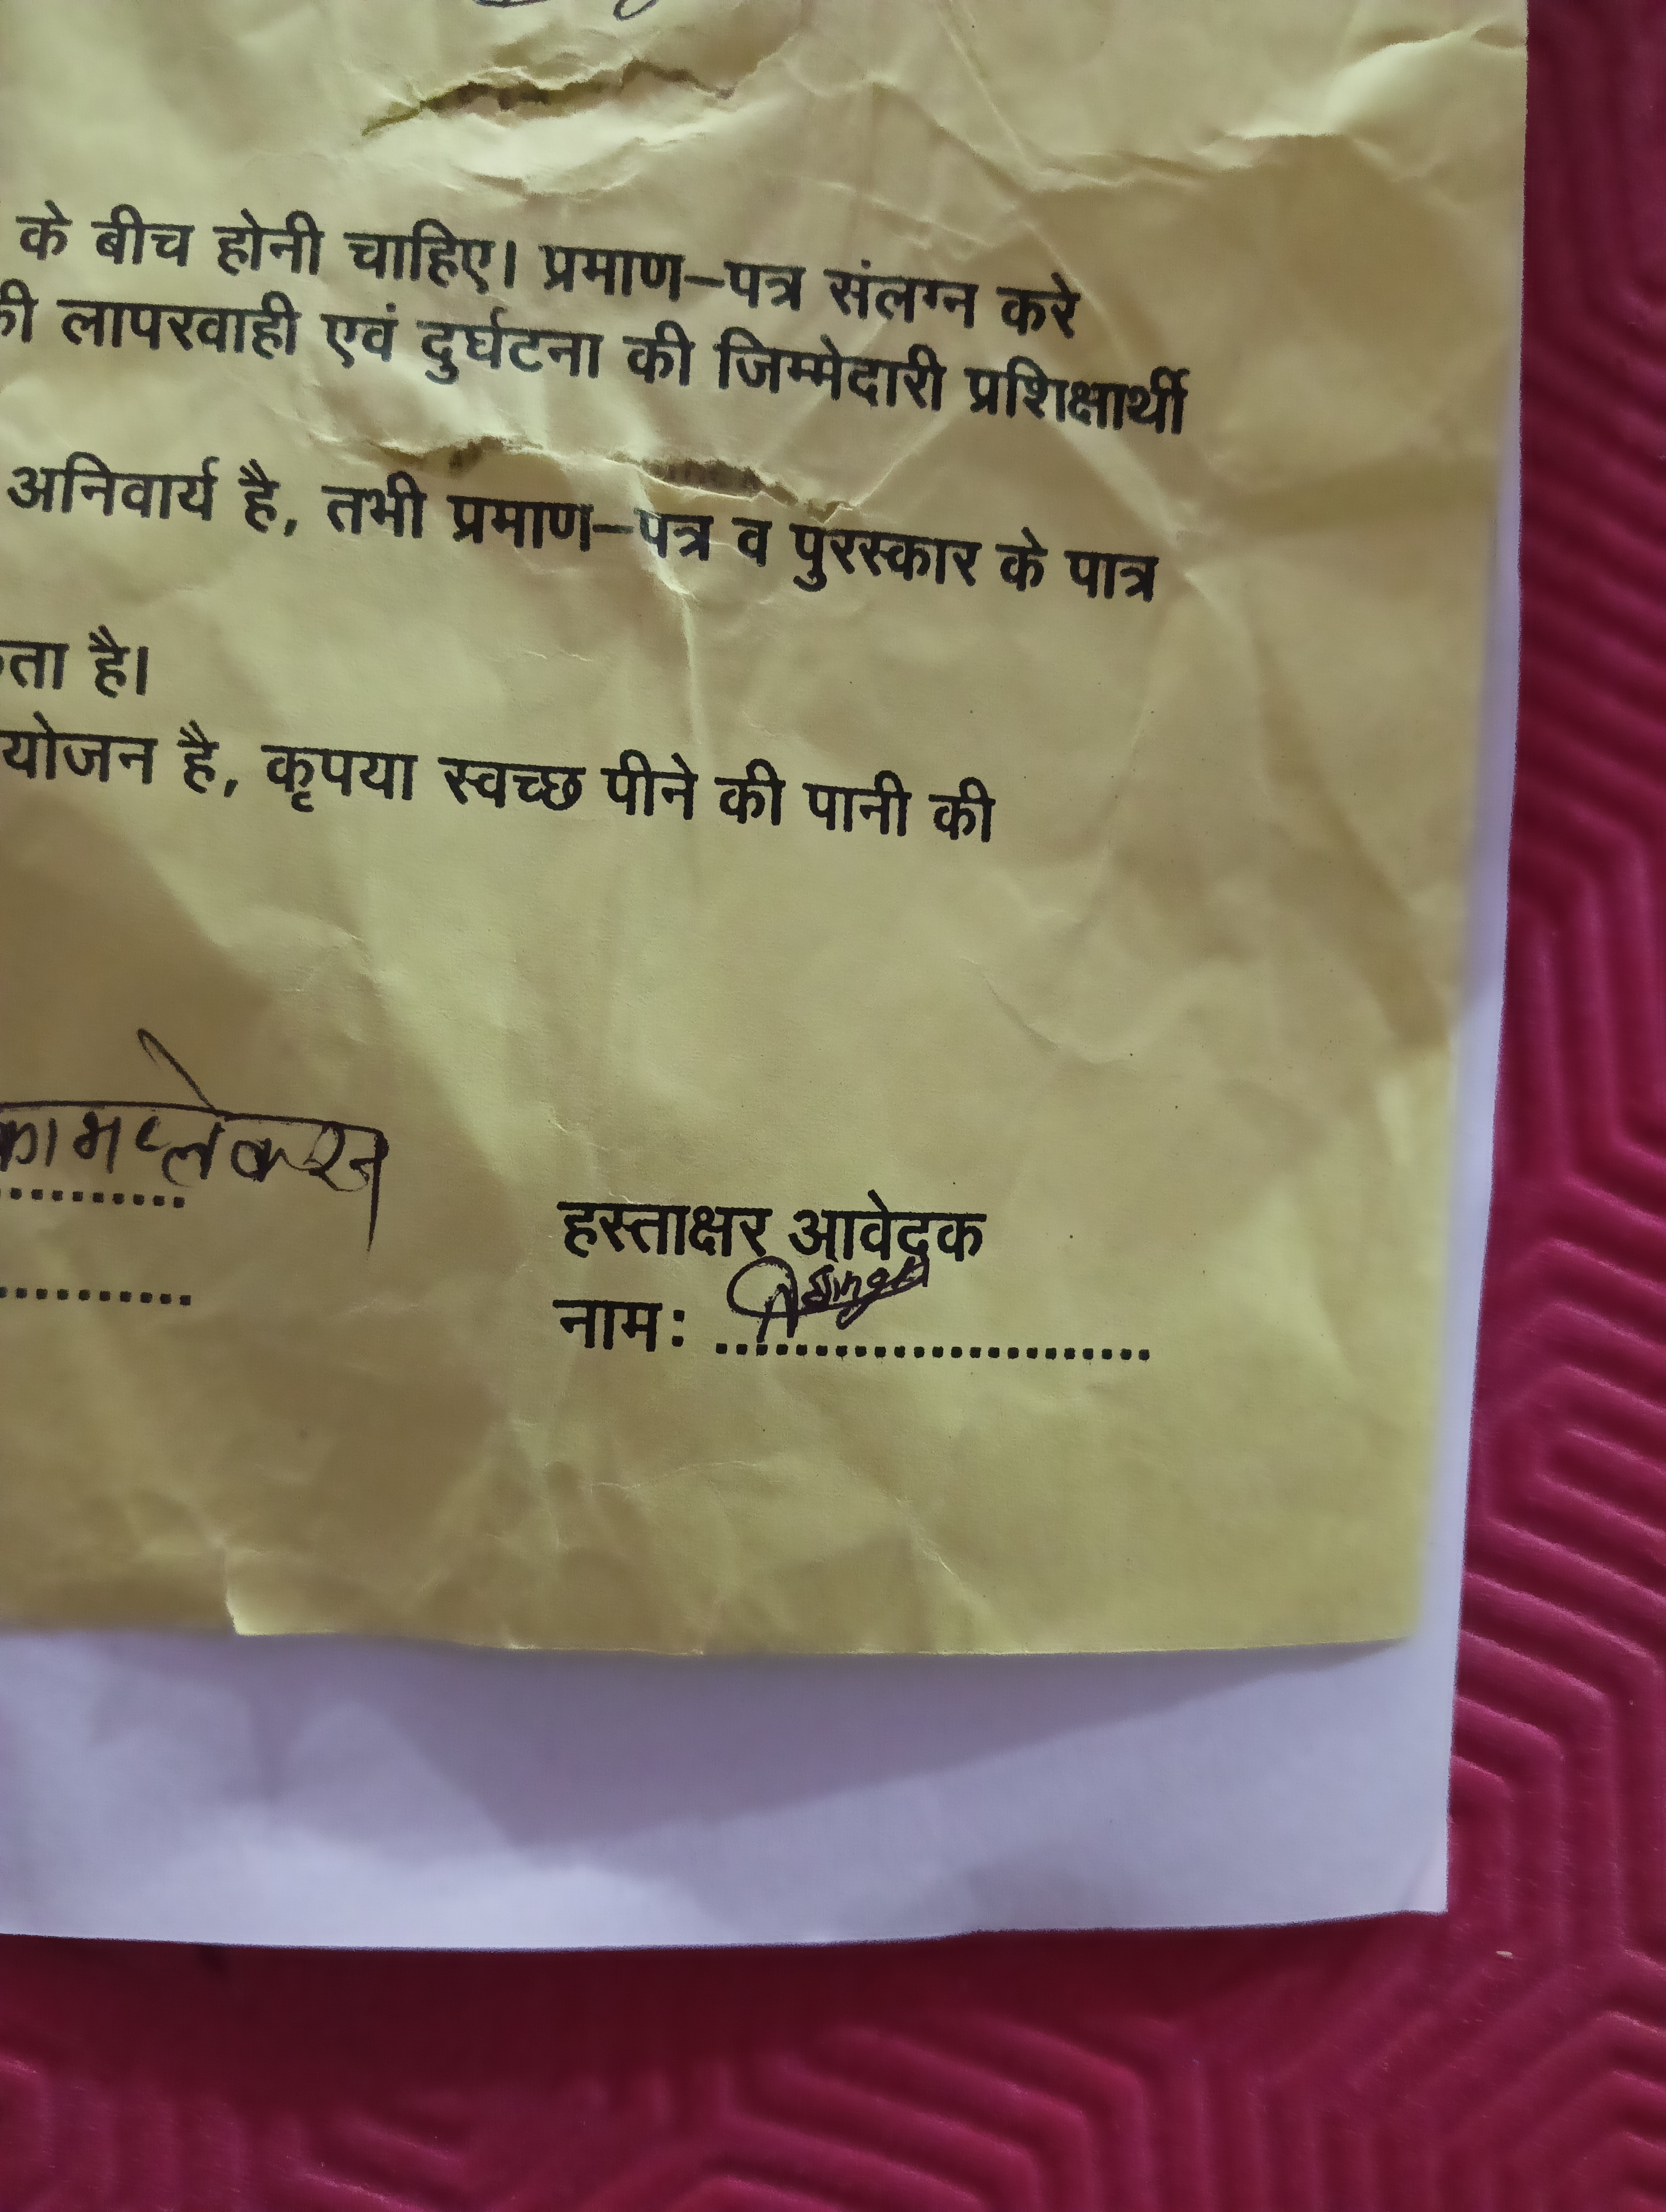 के बीच होनी चाहिए। प्रमाण–पत्र संलग्न करे
की लापरवाही एवं दुर्घटना की जिम्मेदारी प्रशिक्षार्थी
अनिवार्य है, तभी प्रमाण–पत्र व पुरस्कार के पात्र
ता है।
योजन है, कृपया स्वच्छ पीने की पानी की
कामप्लेक्स
हस्ताक्षर आवेदक
नाम: ASingh